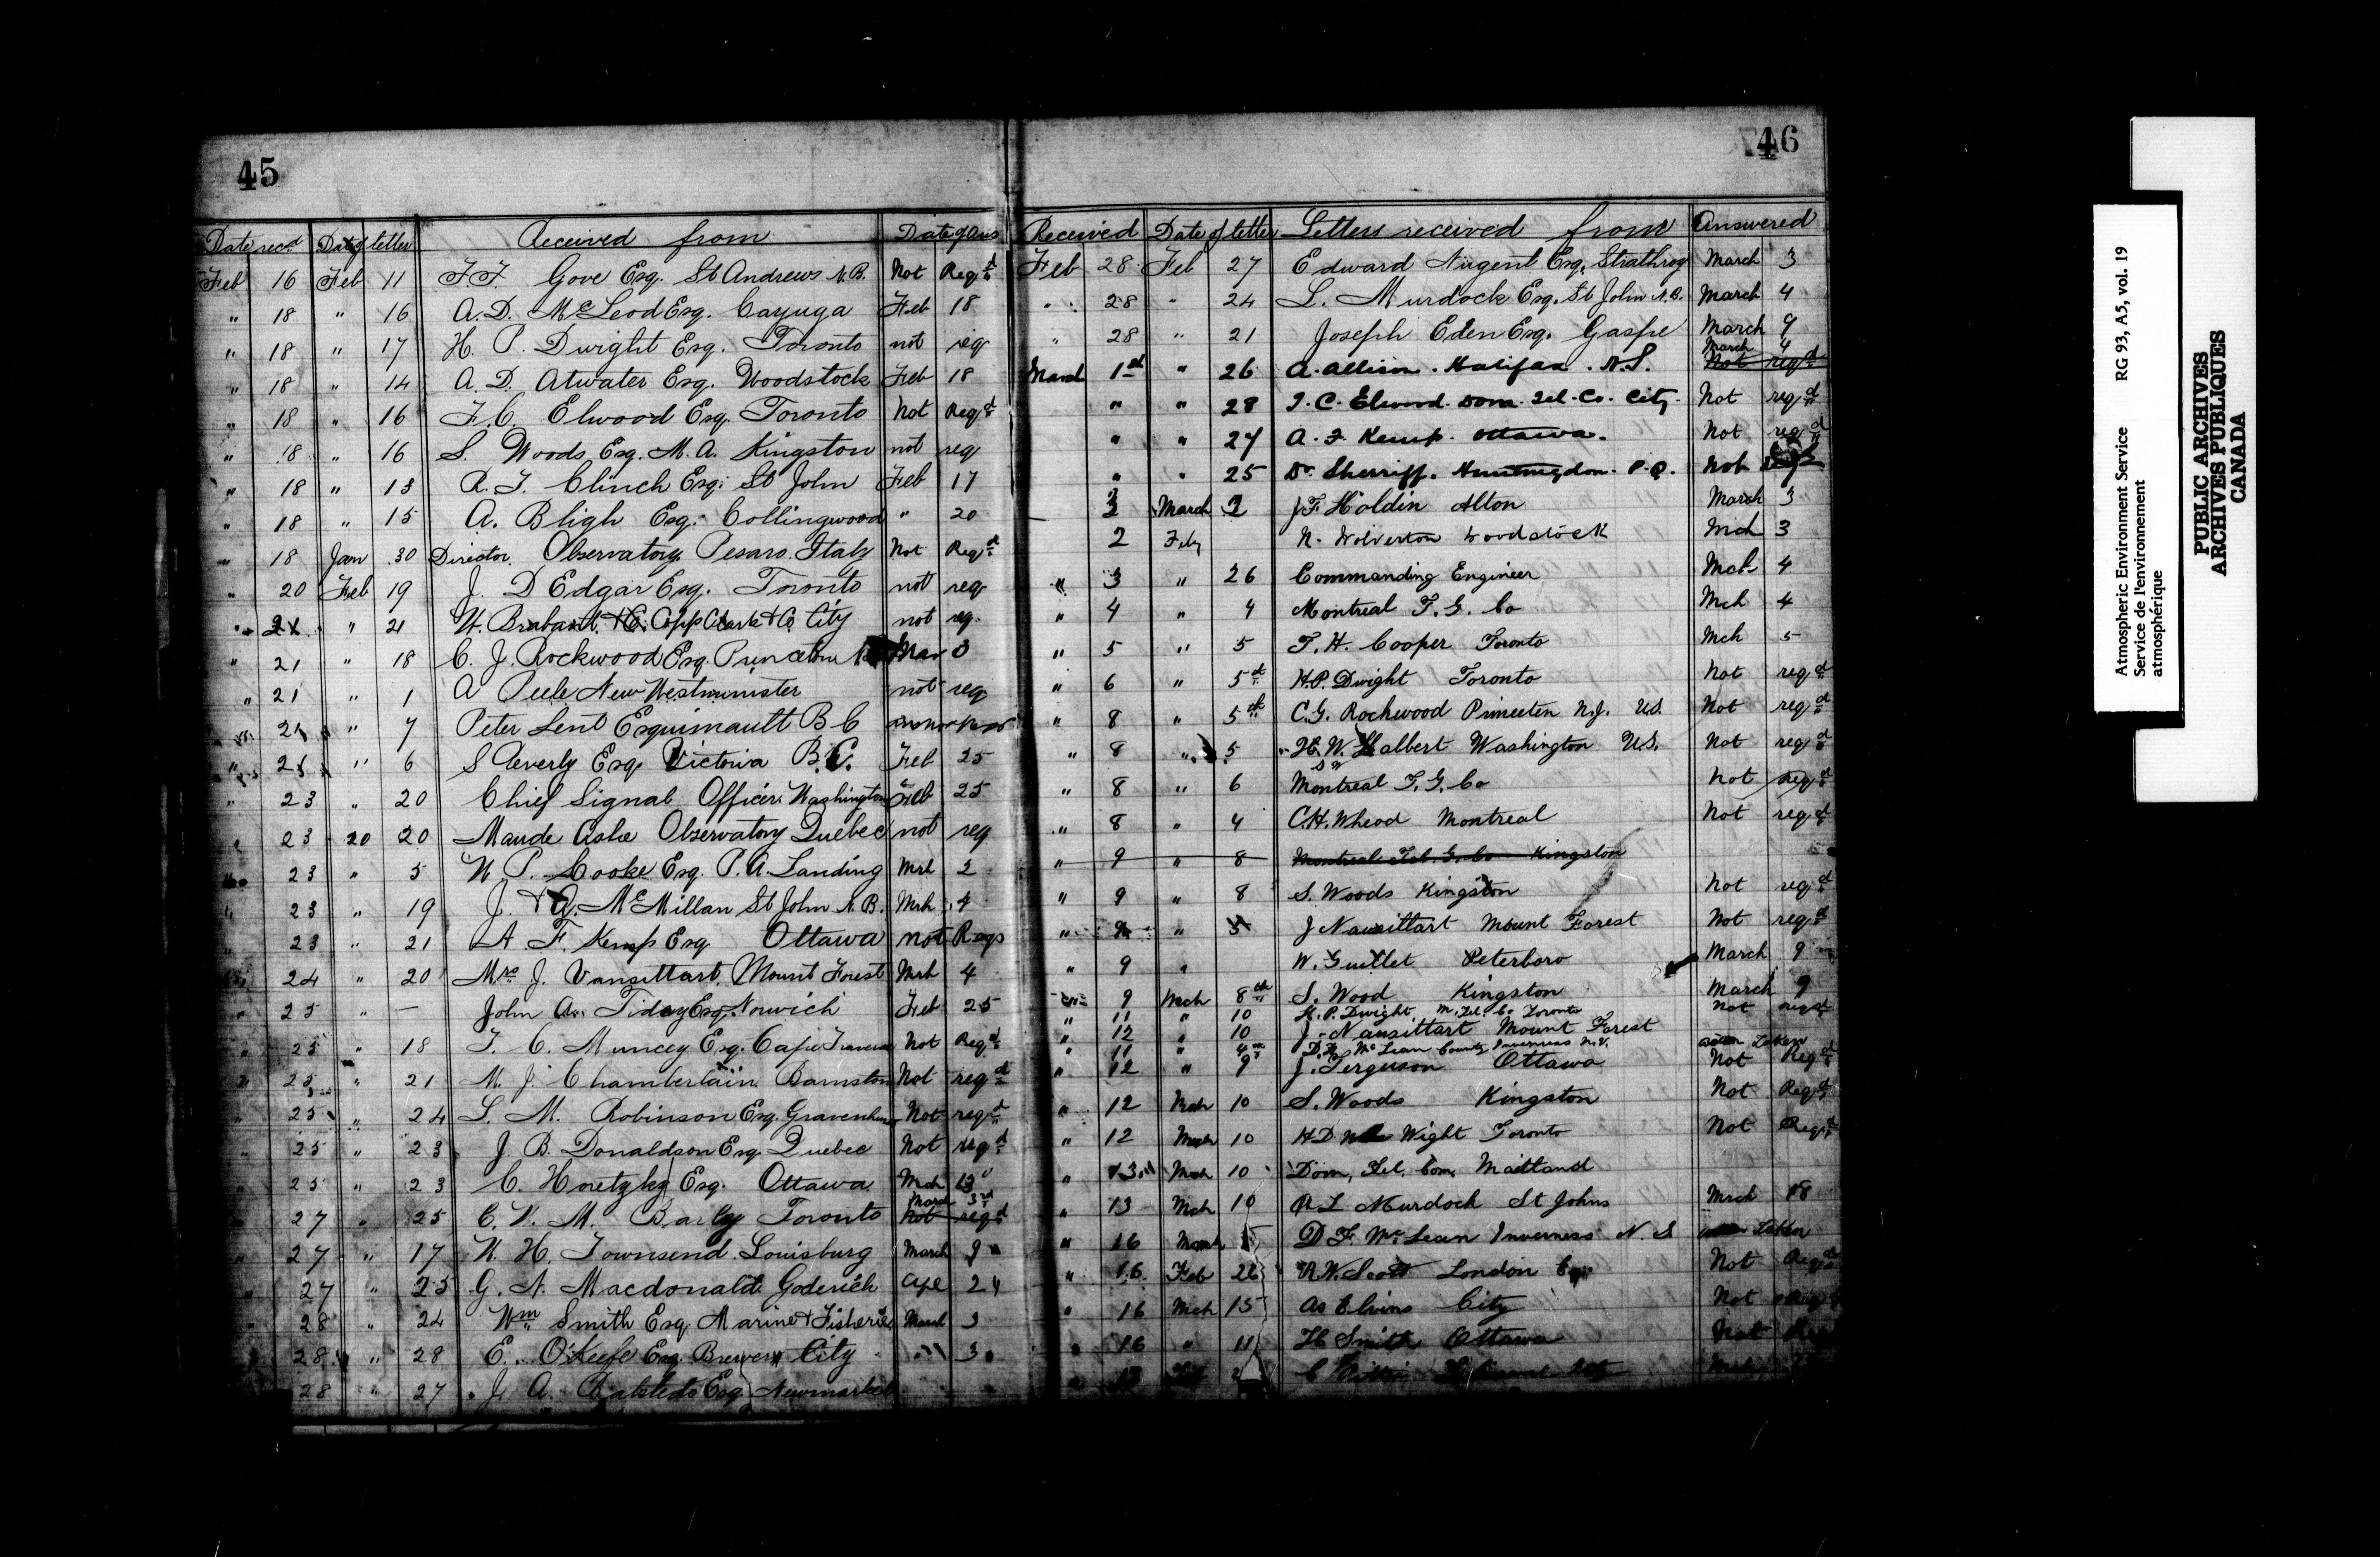 45
Date recd Date of letter Received from Date of Ans
Feb 16 Feb 11 F.F. Gove Esq. St Andrews N.B. Not Reqd
" 18 " 16 A. D. McLeod Esq. Cayuga Feb 18
" 18 " 17 H. P. Dwight Esq. Toronto not req
" 18 " 14 A. D. Atwater Esq. Woodstock Feb 18
" 18 " 16 F. C. Elwood Esq. Toronto Not Reqd
" 18 " 16 S. Woods Esq. M. A. Kingston not req
" 18 " 13 R. J. Clinch Esq. St John Feb 17
" 18 " 15 A. Bligh Esq. Collingwood " 20
" 18 Jan 30 Director Observatory Pesaro Italy Not Reqd
" 20 Feb 19 J. D Edgar Esq. Toronto not req
" 21 " 21 Copp Clark & Co City not req.
" 21 " 18 C. J. Rockwood Esq. Princeton Mar 3
" 21 " 1 A Peele New Westminister not req
" 21 " 7 Peter Lent Esquimault B C
" " 6 S Aeverly Esq Victoria B.C. Feb 25
" 23 " 20 Chief Signal Officer Washington Feb 25
" 23 20 20 Maude Ashe Observatory Quebec not req
" 23 " 5 W. P. Cooke Esq. P. A. Landing Mrh 2
" 23 " 19 J. & A. McMillan St John N. B. Mrh 4
" 23 " 21 A. F. Kemp Esq Ottawa not Reqs
" 24 " 20 Mrs J. Vansittart, Mount Forest Mrh 4
" 25 " — John A. Tidey Esq Norwich Feb 25
" 25 " 18 T. C. Muncey Esq. Cape Traverse Not Reqd
" 25 " 21 M. J. Chamberlain Barnston Not reqd
" 25 " 24 S. M. Robinson Esq. Gravenhurst Not reqd
" 25 " 23 J. B. Donaldson Esq Quebec Not reqd
" 25 " 23 C. Horetzky Esq. Ottawa Mch 12
March 3rd
" 27 " 25 C. V. M. Barly Toronto Not reqd
" 27 " 17 W. H. Townsend Louisburg March 9
" 27 " 25 G. N. Macdonald Goderich Ape 24
" 28 " 24 Wm Smith Esq Marine & Fisheries March 3
" 28 " 28 E. O'Keefe Esq. Brewery City " 3
" 28 " 27 J. A. Esq Newmarket
46
Received Date of letter Letters received from Answered
Feb 28 Feb 27 Edward Nugent Esq. Strathroy March 3
" 28 " 24 L. Murdock Esq. St John N.B. March 4
" 28 " 21 Joseph Eden Esq. Gaspe March 9
March 4
March 1st " 26 A. Allison. Halifax. N.S. Not reqd
" " 28 F. C. Elwood. Dom. Tel. Co. City Not reqd
" " 27 A. F. Kemp. Ottawa. Not reqd
" " 25 Dr Sherriff. Huntingdon. P.Q. Not
2 March 2 J.F. Holdin Alton March 3
2 Feby N. Wolverton Woodstock Mch 3
" 3 " 26 Commanding Engineer Mch 4
" 4 " 4 Montreal T. G. Co Mch 4
" 5 " 5 T. H. Cooper Toronto Mch 5
" 6 " 5th H.P. Dwight Toronto Not reqd
" 8 " 5th C.G. Rockwood Princeton N.J. U.S. Not reqd
" 8 " 5 H. W. Halbert Washington U.S. Not reqd
" 8 " 6 Montreal T. G. Co Not reqd
" 8 " 4 C.H. Whead Montreal Not reqd
" 9 " 8 Montreal Tel. G. Co Kingston
" 9 " 8 S. Woods Kingston Not reqd
" 9 " 5 J Nausittart Mount Forest Not reqd
" 9 " W. Guillet Peterboro March 9
" 9 Mch 8th S. Wood Kingston March 9
" 11 " 10 H. P. Dwight M. Tel. Co Toronto Not reqd
" 12 " 10 J. Nausittart Mount Forest
" 11 " 4th D. F. McLean County Inverness N.S. Taken
" 12 " 9 J. Ferguson Ottawa Not Reqd
" 12 Mch 10 S. Woods Kingston Not Reqd
" 12 Mch 10 H D Wight Toronto Not Reqd
" 13 Mch 10 Dom, Tel. Com, Maitland
" 13 Mch 10 L Murdoch St Johns Mrch 18
" 16 March D F. McLean Inverness N. S Taken
" 16 Feb 26 R.W. Scott London Not Reqd
" 16 Mch 15 As Elvins City Not
" 16 " 11 H Smith Ottawa Not
Atmospheric Environment Service RG 93, A5, vol. 19
Service de l'environnement
atmosphérique
PUBLIC ARCHIVES
ARCHIVES PUBLIQUES
CANADA